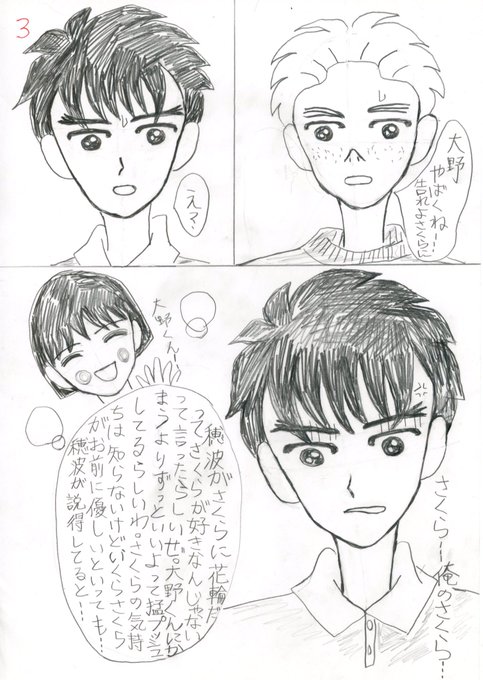 3
大野
やばくねー…
告れよさくらに
え?
さくらー俺のさくら…
大野くんー
穂波がさくらに花輪だ
ってさくらが好きなんじゃない
って言ったらしいぜ。大野くんにか
まうよりずっといいよって猛プッシュ
してるらしいわ。さくらの気持
ちは知らないけどいくらさくら
がお前に優しいといっても…
穂波が説得してると…